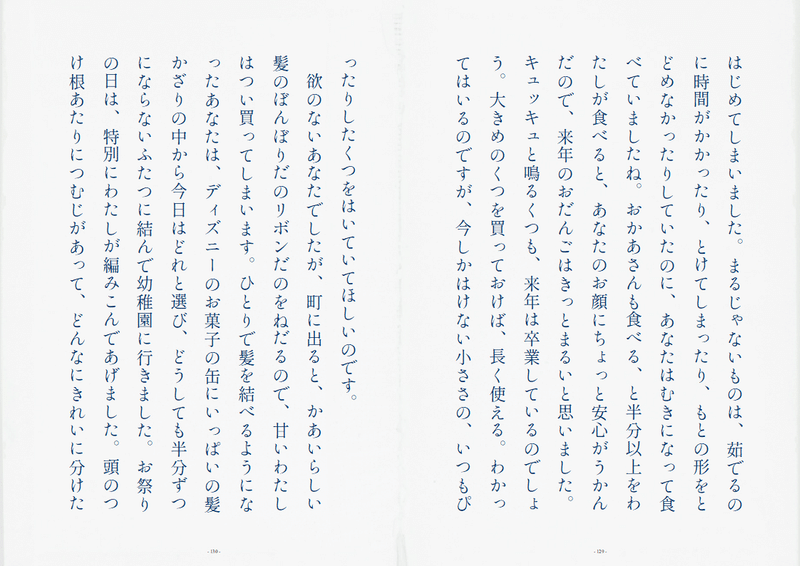 はじめてしまいました。まるじゃないものは、茹でるの
に時間がかかったり、とけてしまったり、もとの形をと
どめなかったりしていたのに、あなたはむきになって食
べていましたね。おかあさんも食べる、と半分以上をわ
たしが食べると、あなたのお顔にちょっと安心がうかん
だので、来年のおだんごはきっとまるいと思いました。
キュッキュと鳴るくつも、来年は卒業しているのでしょ
う。大きめのくつを買っておけば、長く使える。わかっ
てはいるのですが、今しかはけない小ささの、いつもぴ
- 129 -
ったりしたくつをはいていてほしいのです。
欲のないあなたでしたが、町に出ると、かあいらしい
髪のぼんぼりだのリボンだのをねだるので、甘いわたし
はつい買ってしまいます。ひとりで髪を結べるようにな
ったあなたは、ディズニーのお菓子の缶にいっぱいの髪
かざりの中から今日はどれと選び、どうしても半分ずつ
にならないふたつに結んで幼稚園に行きました。お祭り
の日は、特別にわたしが編みこんであげました。頭のつ
け根あたりにつむじがあって、どんなにきれいに分けた
- 130 -